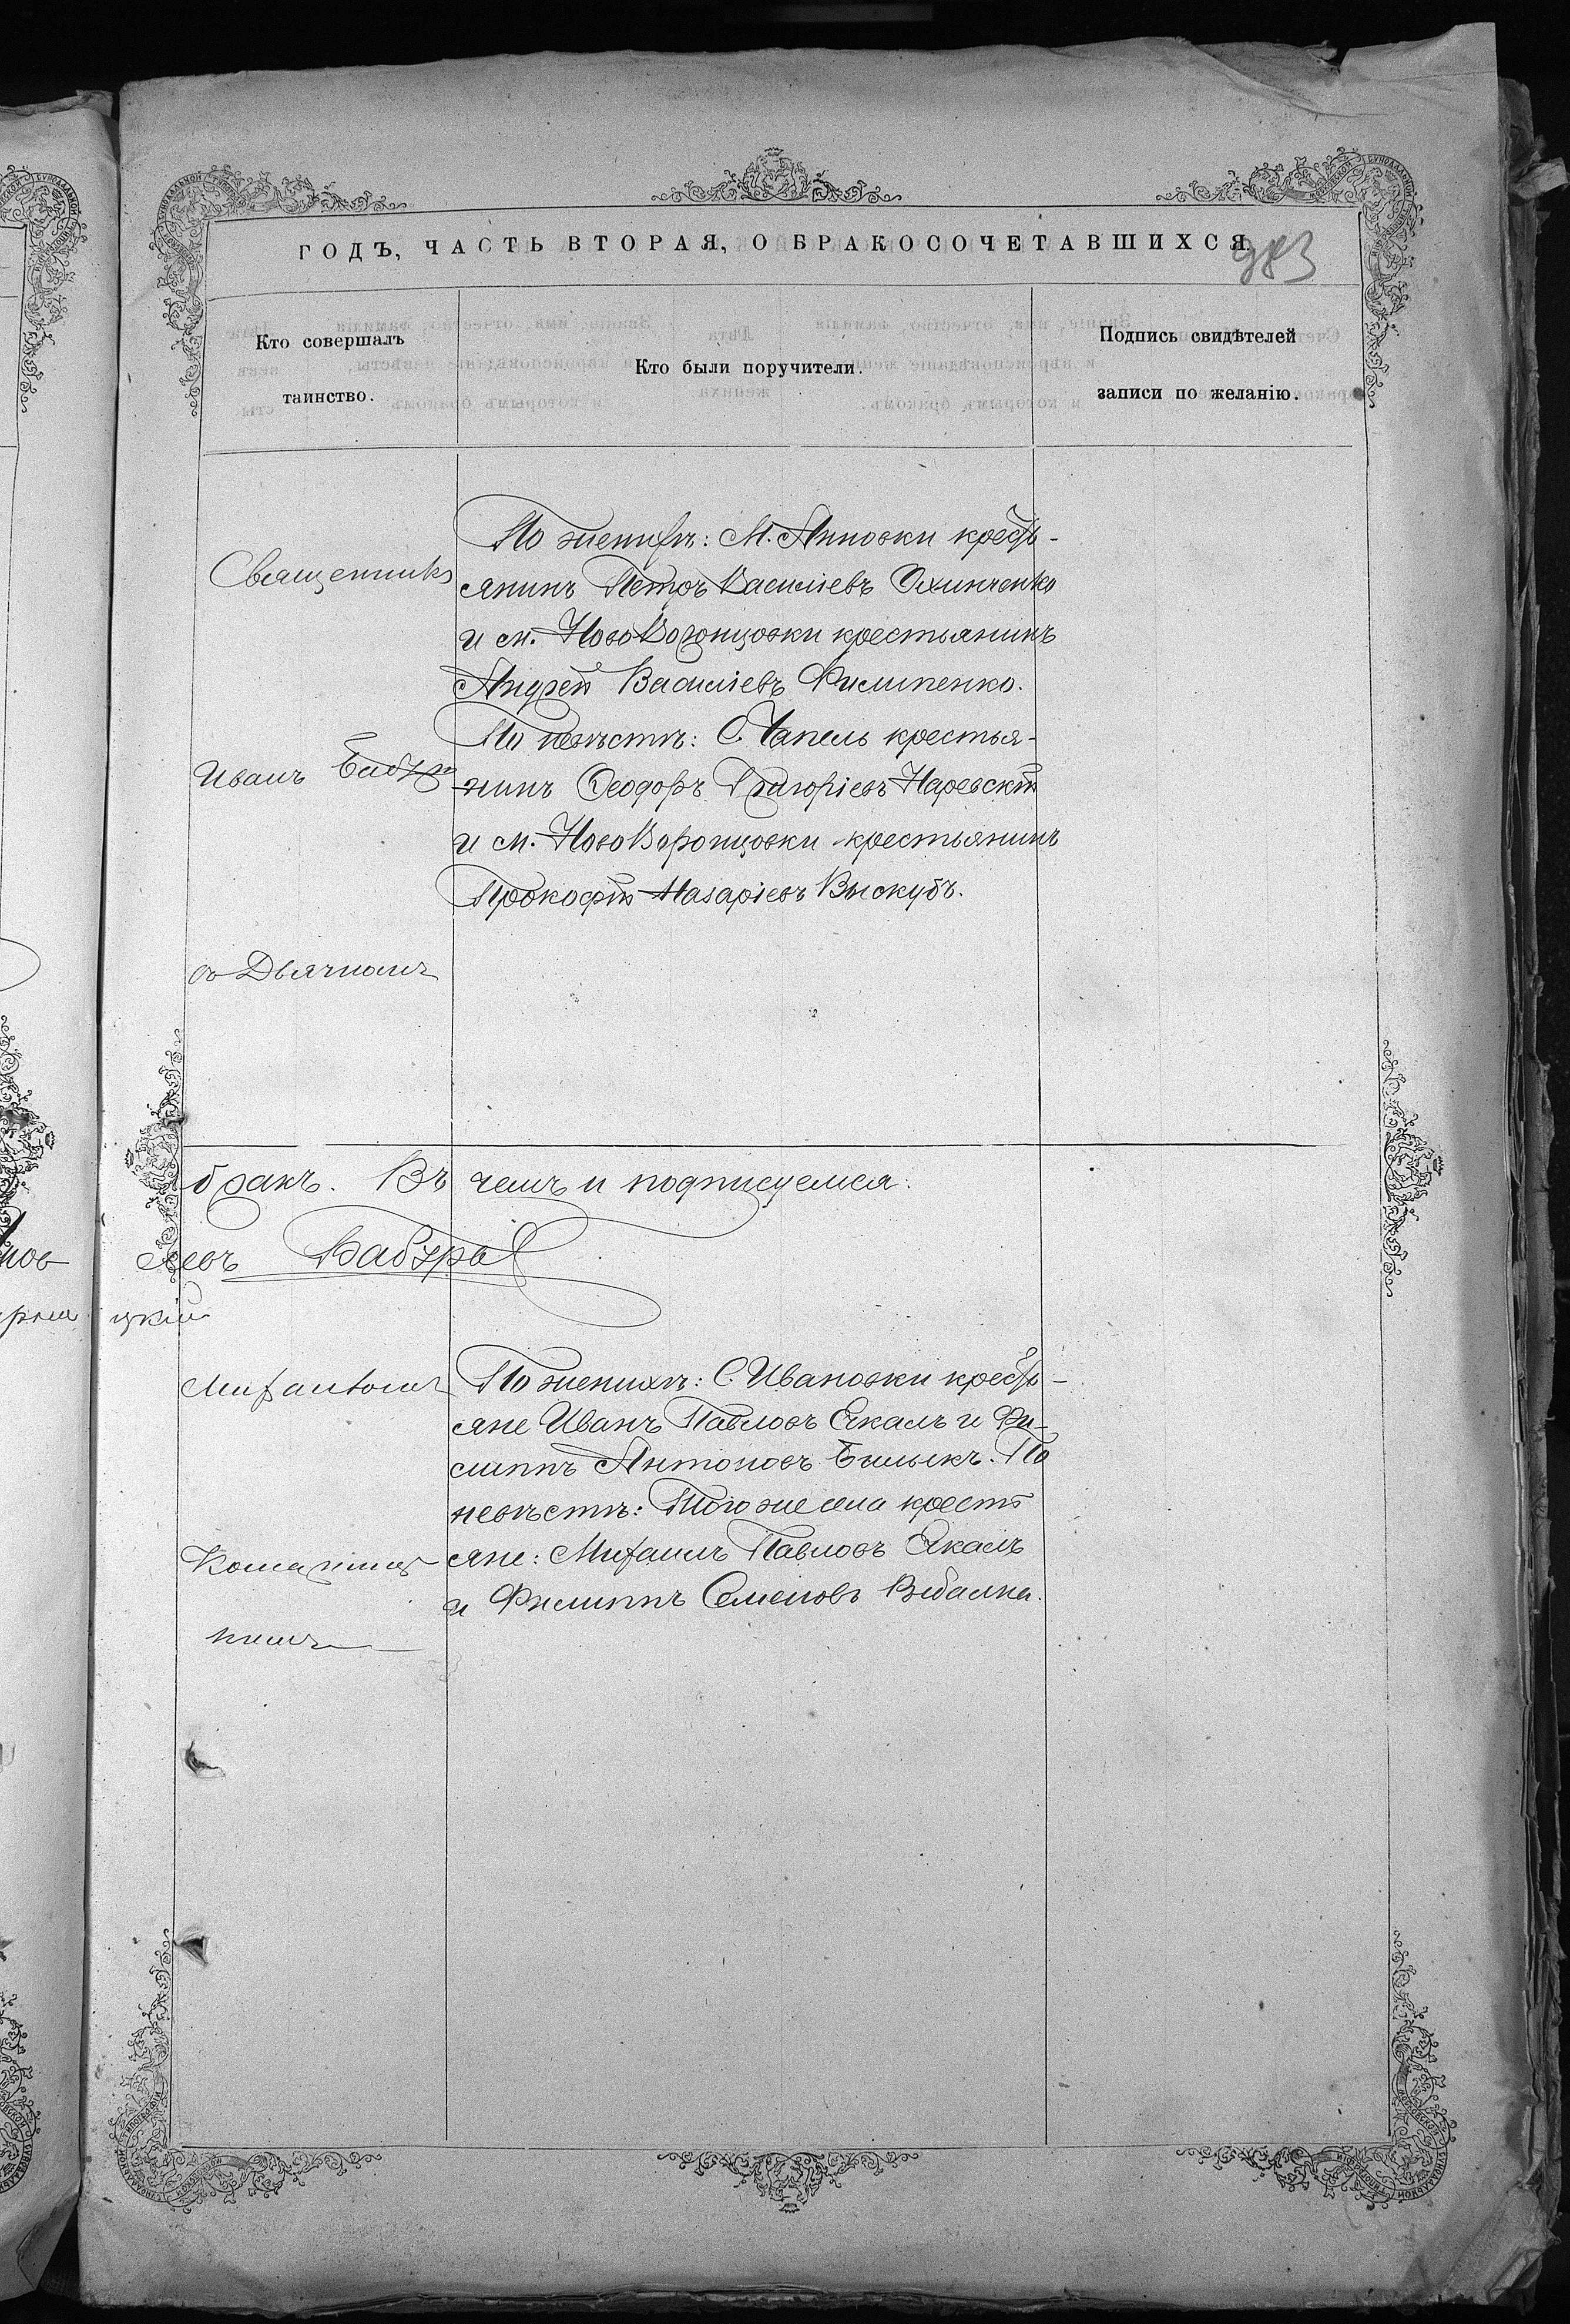 ГОДЪ, ЧАСТЬ ВТОРАЯ, О БРАКОСОЧЕТАВШИХСЯ.
983
Кто совершалъ
таинство.
Кто были поручители.
Подпись свидѣтелей
записи по желанію.
Священникъ
Иванъ
съ Дьячкомъ
По женихѣ: М. Анновки кресть-
янинъ Петръ Василіевъ Охинченко
и м. НовоВоронцовки крестьянинъ
Андрей Василіевъ Филипенко.
По невѣстѣ: С. Чапель крестья-
нинъ Ѳеодоръ Григоріевъ Наревскій
и м. НовоВоронцовки крестьянинъ
Прокофій Назаріевъ Выскубъ.
бракъ. Въ чемъ и подписуемся:
Бабура
цкій
Михаиломъ
По женихѣ: С. Ивановки кресть-
яне Иванъ Павловъ Якалъ и Фи-
липпъ Антоновъ Билыкъ. По
невѣстѣ: Того же села кресть
яне: Михаилъ Павловъ Якалъ
и Филиппъ Семеновъ